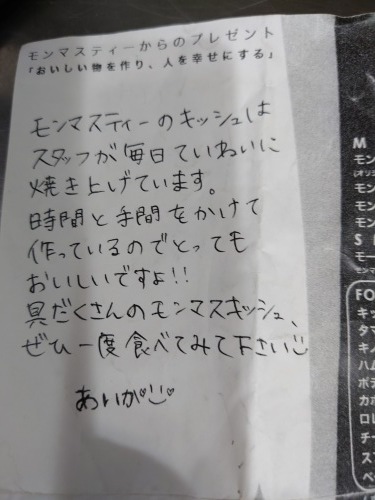 モンマスティーからのプレゼント
「おいしい物を作り、人を幸せにする」
モンマスティーのキッシュは
スタッフが毎日ていねいに
焼き上げています。
時間と手間をかけて
作っているのでとっても
おいしいですよ!!
具だくさんのモンマスキッシュ、
ぜひ一度食べてみて下さい
あいか
M
モン
モン
モン
モン
S
モー
FO
キッ
タマ
キノ
ハム
ポテ
カボ
ロレ
チー
スフ
ベ